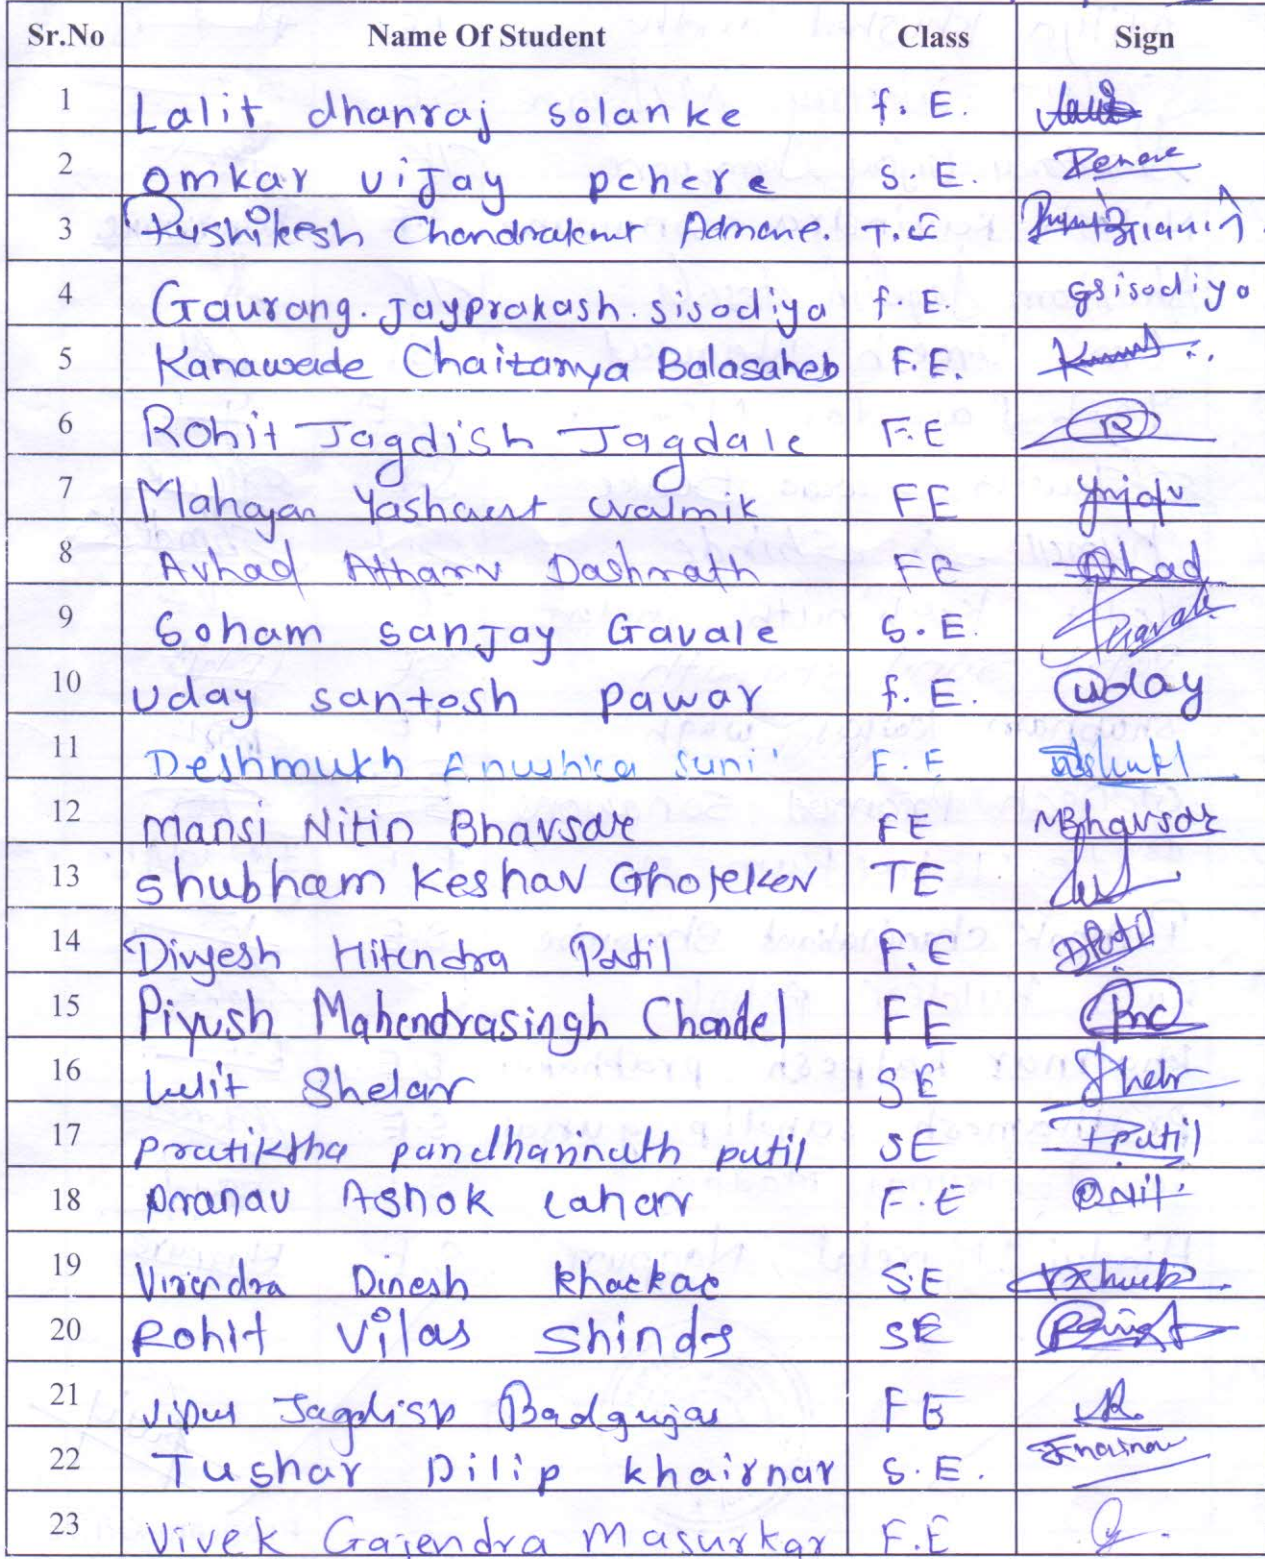 Sr.No Name Of Student Class Sign
1 Lalit dhanraj solanke f. E.
2 omkar vijay pehere S. E.
3 Rushikesh Chandrakant Admane. T.E
4 Gaurang. Jayprakash. sisodiya f E. Gsisodiya
5 Kanawade Chaitanya Balasaheb F.E.
6 Rohit Jagdish Jagdale F.E R
7 Mahajan Yashwant walmik FE
8 Avhad Atharv Dashrath FE Avhad
9 Soham sanjay Gavale S.E. Gavale
10 uday santosh pawar f. E. uday
11 Deshmukh Anushka Sunil F.E
12 Mansi Nitin Bhavsar FE MBhavsar
13 Shubham Keshav Ghojekar TE
14 Divyesh Hitendra Patil F.E DPatil
15 Piyush Mahendrasingh Chandel FE
16 Lalit Shelar SE
17 pratiktha pandharinath patil SE Ppatil
18 pranav Ashok Lahar F.E
19 Virendra Dinesh khackac SE
20 Rohit Vilas Shinde SE
21 Vipul Jagdish Badgujar FE
22 Tushar Dilip khairnar S.E.
23 Vivek Gajendra Masurkar F.E